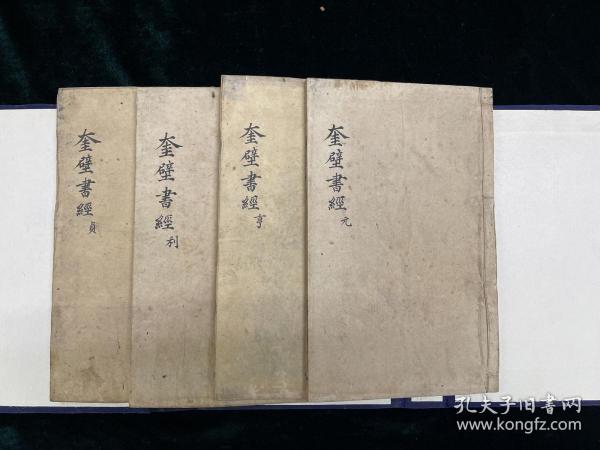 奎壁書經 元
奎壁書經 亨
奎壁書經 利
奎壁書經 貞
孔夫子旧书网
www.kongfz.com